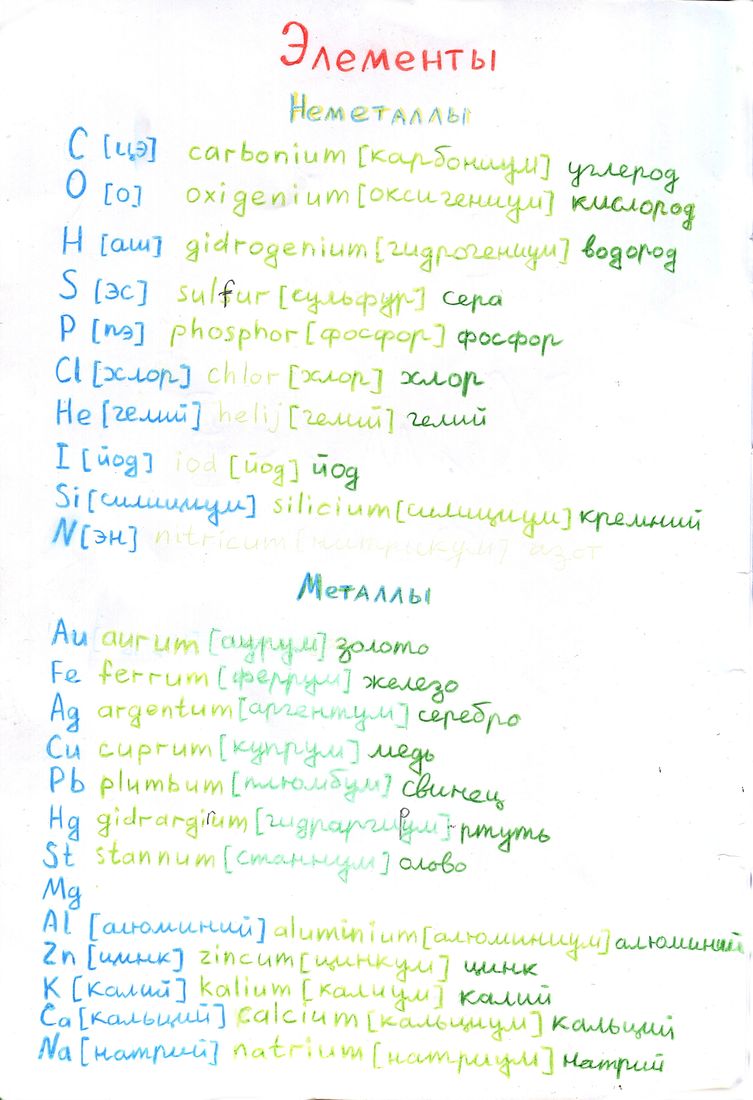 Элементы
Неметаллы
C [цэ] carbonium [карбониум] углерод
O [о] oxigenium [оксигениум] кислород
H [аш] gidrogenium [гидрогениум] водород
S [эс] sulfur [сульфур] сера
P [пэ] phosphor [фосфор] фосфор
Cl [хлор] chlor [хлор] хлор
He [гелий] helij [гелий] гелий
I [йод] iod [йод] йод
Si [силициум] silicium [силициум] кремний
N [эн] nitricum [нитрикум] азот
Металлы
Au aurum [аурум] золото
Fe ferrum [феррум] железо
Ag argentum [аргентум] серебро
Cu cuprum [купрум] медь
Pb plumbum [плюмбум] свинец
Hg gidrargirum [гидраргирум] ртуть
St stannum [станнум] олово
Mg
Al [алюминий] aluminium [алюминиум] алюминий
Zn [цинк] zincum [цинкум] цинк
K [калий] kalium [калиум] калий
Ca [кальций] calcium [кальциум] кальций
Na [натрий] natrium [натриум] натрий